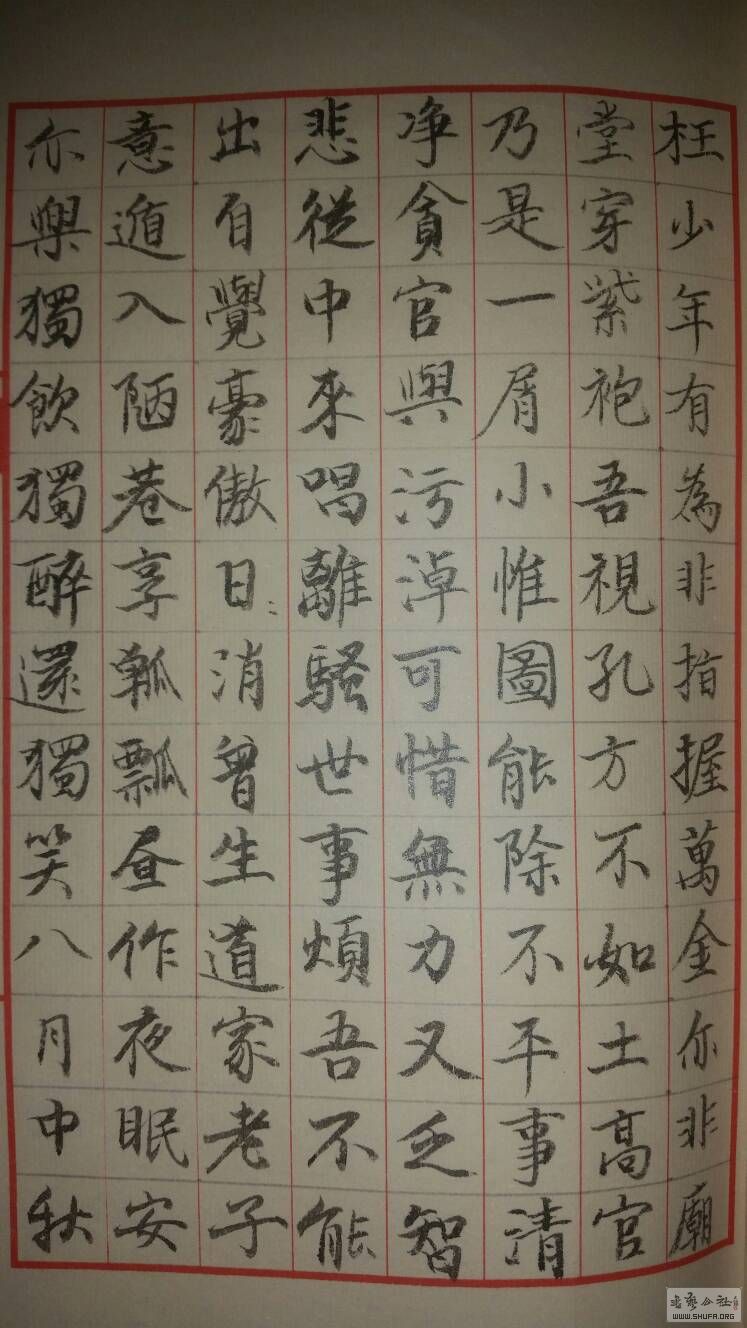 枉少年有為非指握萬金你非廟
堂穿紫袍吾視孔方不如土高官
乃是一屑小惟圖能除不平事清
净貪官與污淖可惜無力又乏智
悲從中來唱離騷世事煩吾不能
出自覺豪傲日:消曾生道家老子
意遁入陋巷享瓢瓢昼作夜眠安
亦樂獨飲獨醉還獨笑八月中秋
書法公社
WWW.SHUFA.ORG